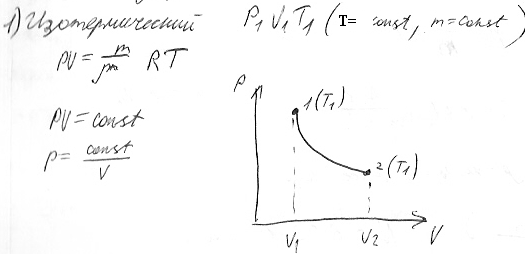 1) Изотермический P₁ V₁ T₁ (T= const, m=const)
PV = m/μ RT
PV = const
P = const/V
P
1 (T₁)
2 (T₁)
V₁ V₂ V